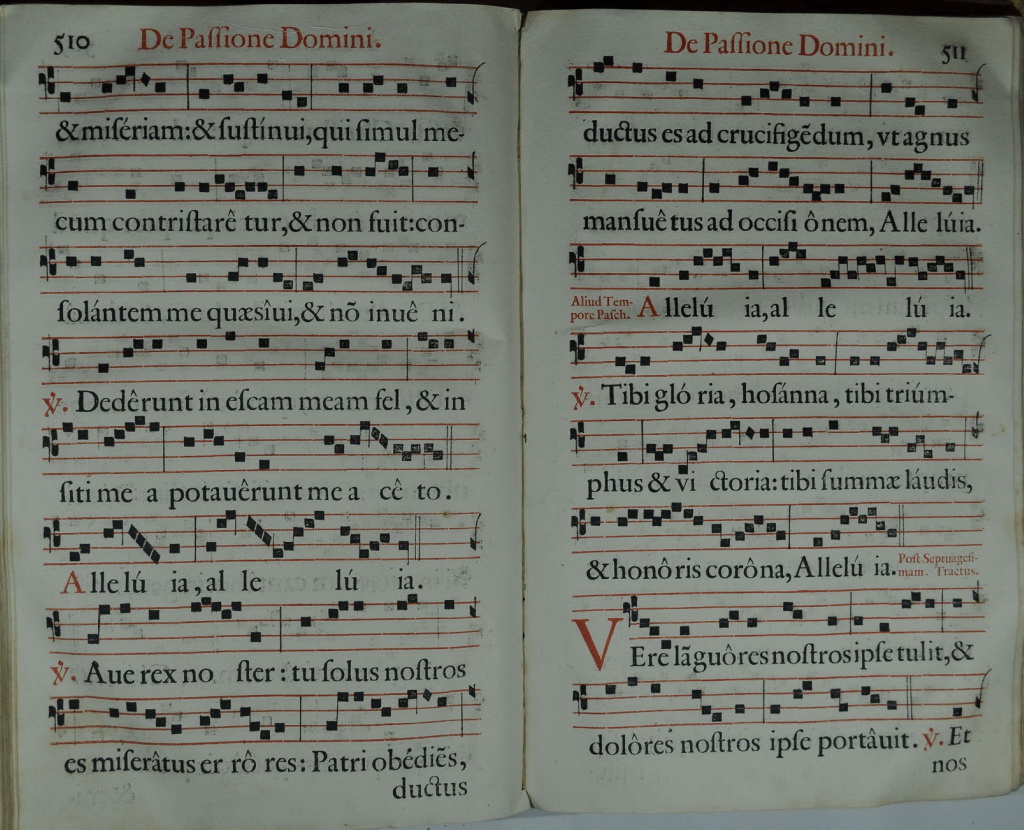 510 De Paſſione Domini.
& miſériam: & ſuſtínui, qui ſimul me-
cum contriſtarê tur, & non fuit: con-
ſolántem me quæsîui, & nõ inuê ni.
℣. Dedêrunt in eſcam meam fel, & in
ſiti me a potauêrunt me a cê to.
Alle lú ia, al le lú ia.
℣. Aue rex no ſter: tu ſolus noſtros
es miſerâtus er rô res: Patri obédiẽs,
ductus
De Paſſione Domini. 511
ductus es ad crucifigẽdum, vt agnus
manſuê tus ad occiſi ônem, Alle lúia.
Aliud Tem-
pore Paſch. Allelú ia, al le lú ia.
℣. Tibi gló ria, hoſánna, tibi triúm-
phus & vi ctoria: tibi ſummæ láudis,
& honôris corôna, Allelú ia. Poſt Septuageſi-
mam. Tractus.
VEre lãguôres noſtros ipſe tulit, &
dolôres noſtros ipſe portâuit. ℣. Et
nos